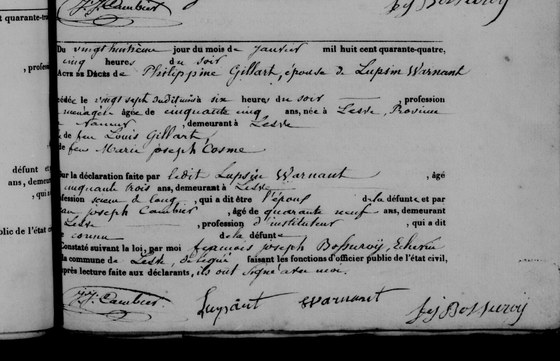 J. J. Cambier
fs Bossuroÿ
quarante-
, profess
défunt e
ans, demeu
, qui a
blic de l'état c
Du vingt huitième jour du mois de janvier mil huit cent quarante-quatre,
cinq heures du soir
Acte de Décès de Philippine Gillart, épouse de Lupsin Warnant
cédée le vingt sept dudit mois à six heures du soir profession
menagère âgée de cinquante cinq ans, née à Lesve, Province
Namur, demeurant à Lesve
de feu Louis Gillart,
de feue Marie Joseph Cosme
Sur la déclaration faite par ledit Lupsin Warnant, âgé
cinquante trois ans, demeurant à Lesve
fession scieur de long, qui a dit être l'époux de la défunte et par
Jean Joseph Cambier, âgé de quarante neuf ans, demeurant
Lesve, profession d'instituteur, qui a dit
connu de la défunte
Constaté suivant la loi, par moi françois joseph Bossuroÿ, Echevin
la commune de Lesve, délégué faisant les fonctions d'officier public de l'état civil,
après lecture faite aux déclarants, ils ont signé avec moi.
J. J. Cambier
Lupsant Warnant
fsj Bossuroÿ